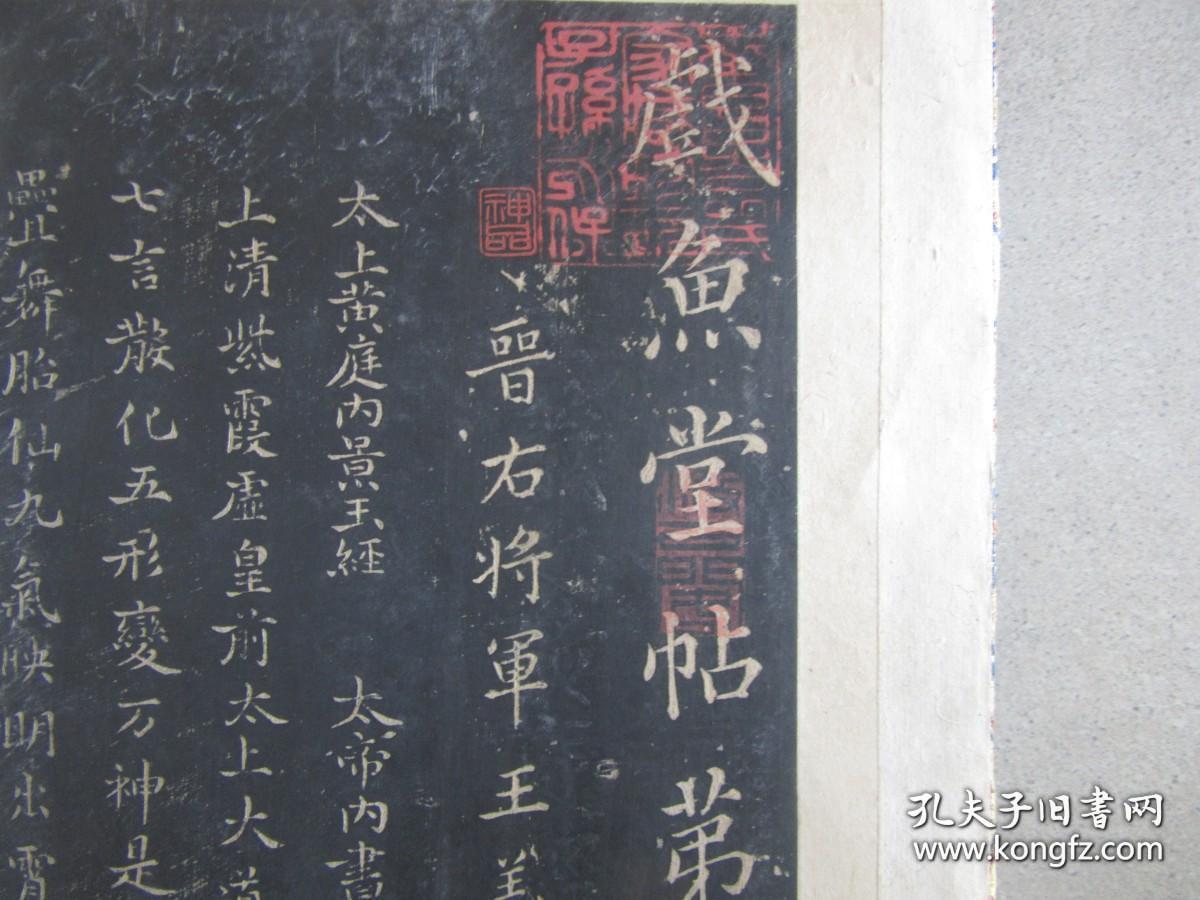 戲魚堂帖苐
晉右將軍王羲
太上黃庭內景玉經 太帝內書
上清紫霞虛皇前太上大道
七言散化五形變万神是
疊舞胎仙九氣映明出霄
神品
孔夫子旧書网
www.kongfz.com